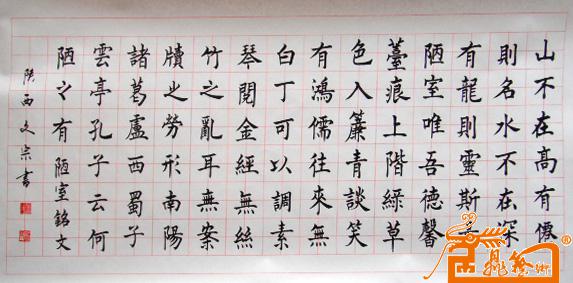 山不在高有僊
則名水不在深
有龍則靈斯是
陋室唯吾德馨
薹痕上階綠草
色入簾青談笑
有鴻儒往來無
白丁可以調素
琴閱金經無絲
竹之亂耳無案
牘之勞形南陽
諸葛廬西蜀子
雲亭孔子云何
陋之有陋室銘文
陝西文宗書